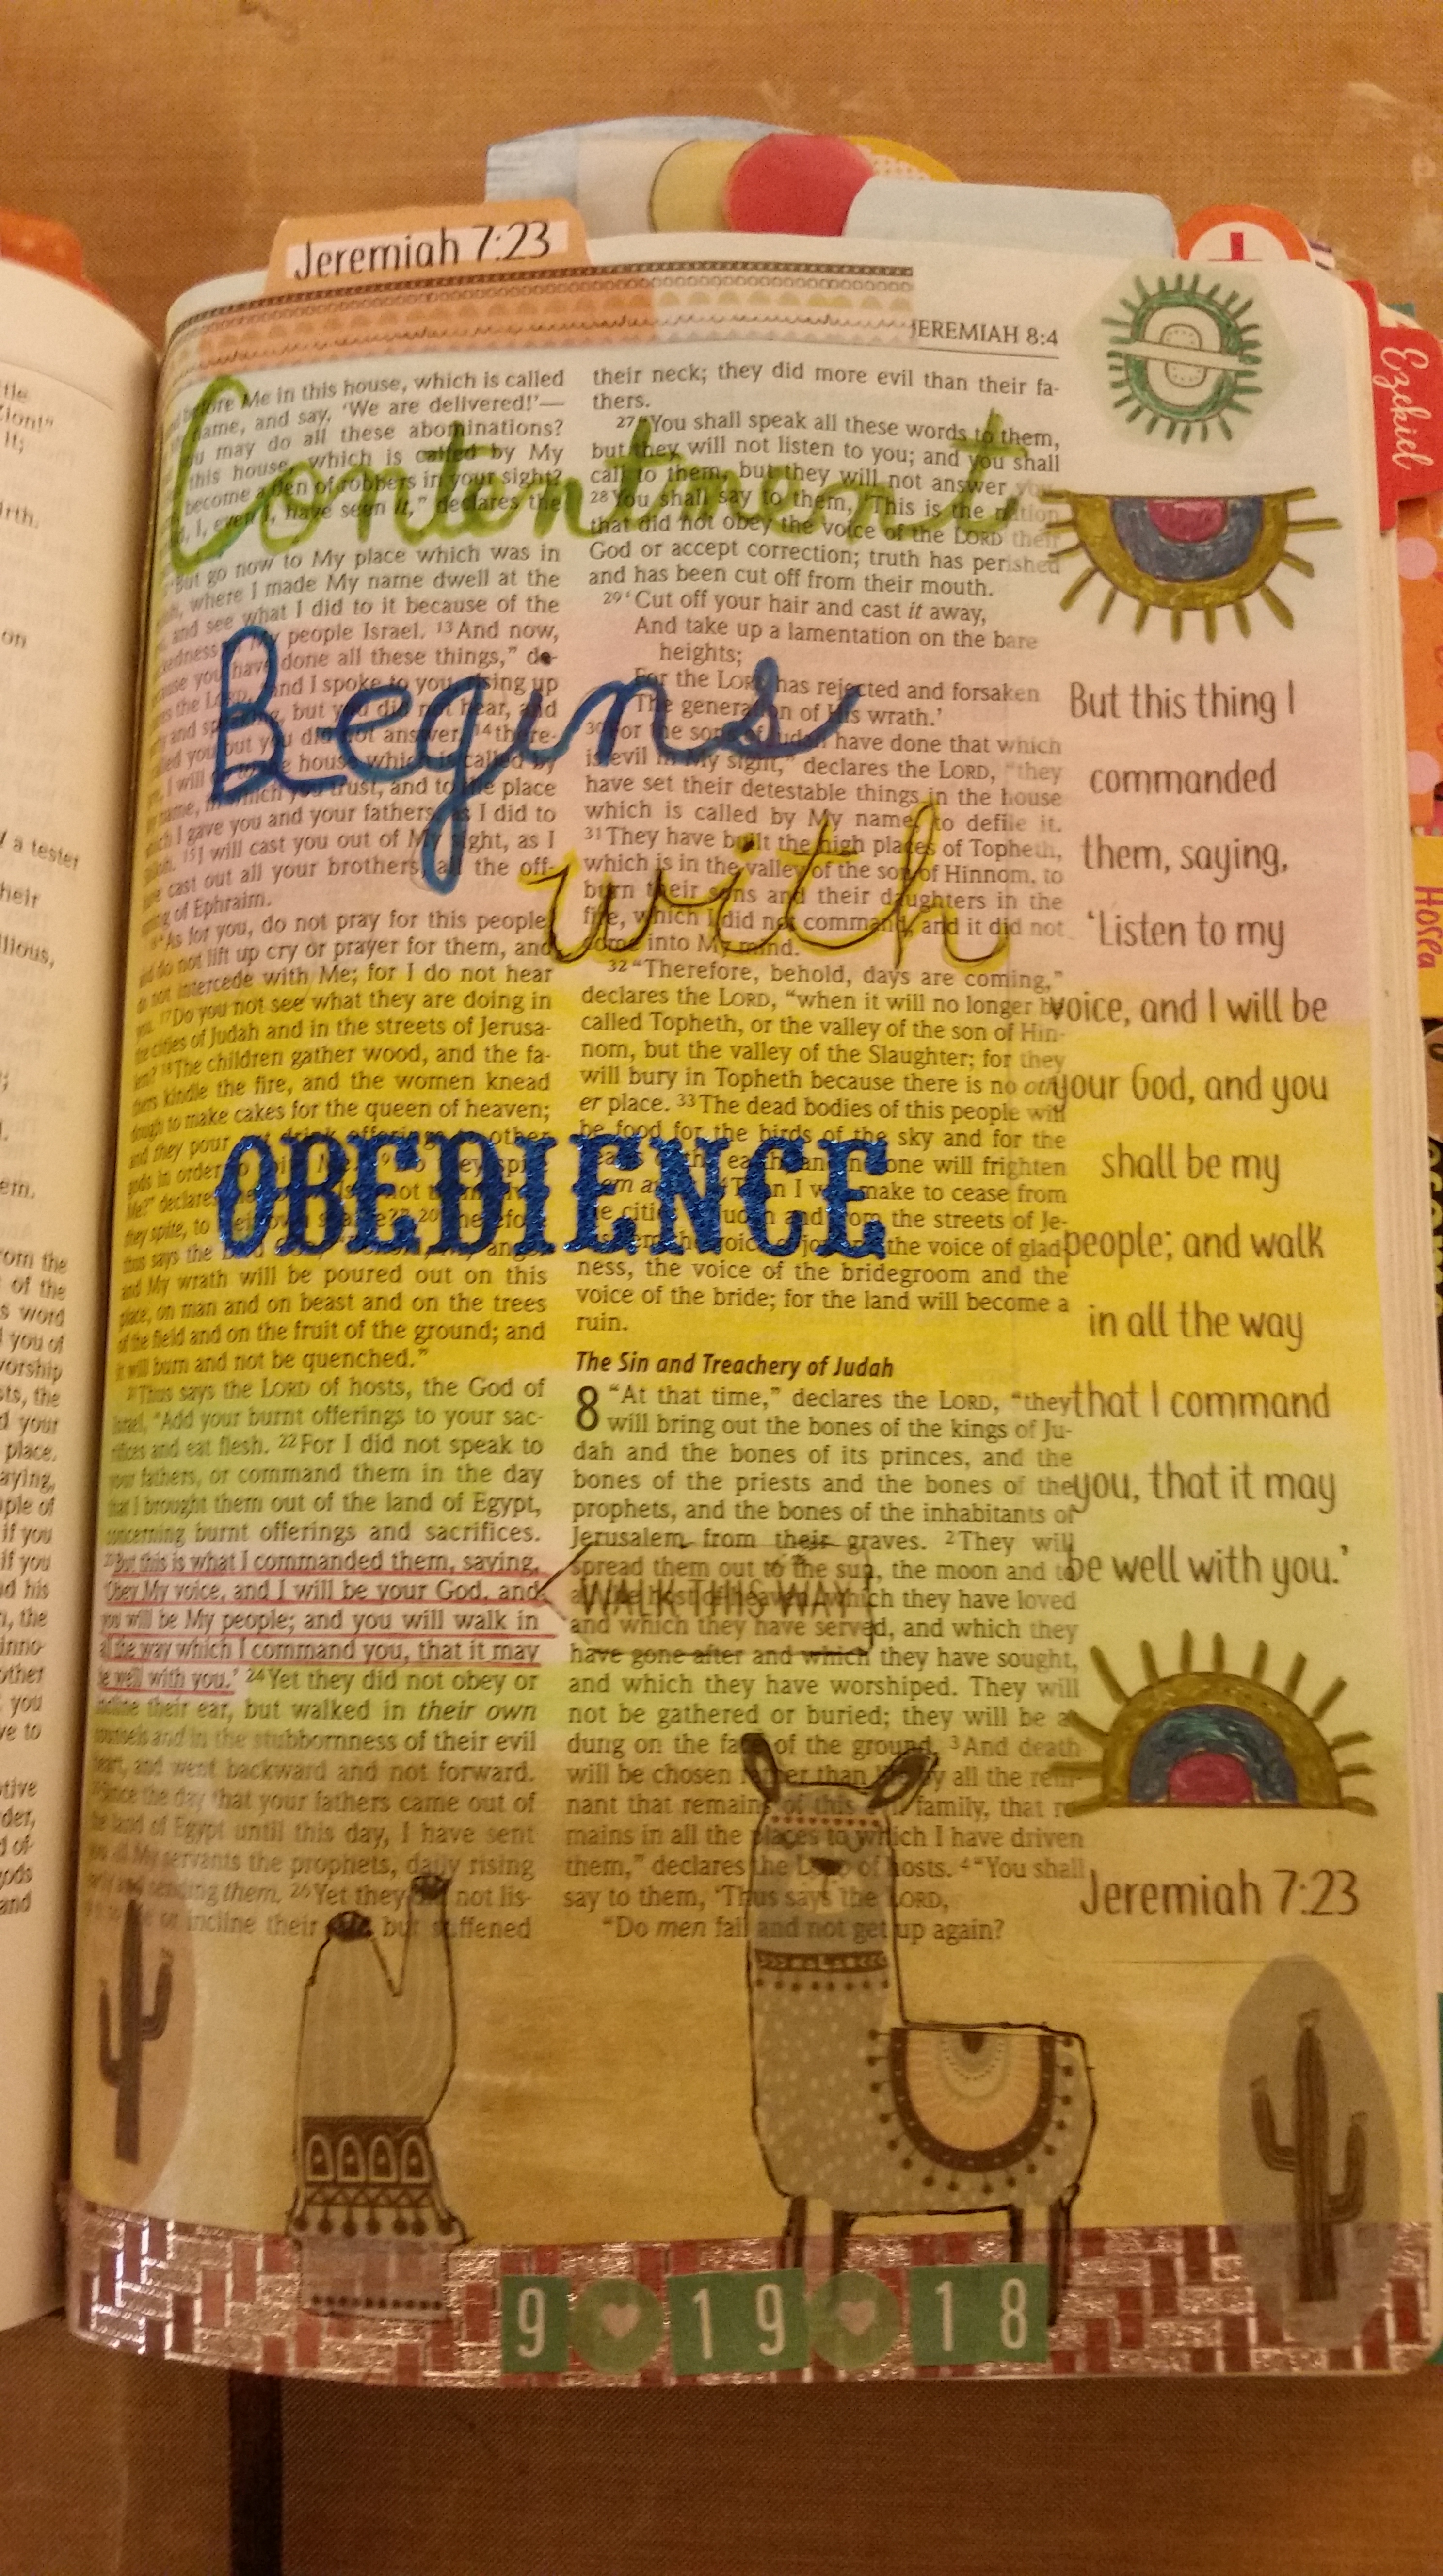 Jeremiah 7:23
JEREMIAH 8:4
Ezekiel
Hosea
Contentment
Begins
with
OBEDIENCE
Me in this house, which is called
name, and say, 'We are delivered!'—
may do all these abominations?
this house, which is called by My
become a den of robbers in your sight?
I, even I, have seen it," declares the
But go now to My place which was in
where I made My name dwell at the
and see what I did to it because of the
people Israel. 13 And now,
you have done all these things," de-
the LORD, "and I spoke to you, rising up
and speaking, but you did not hear, and
you but you did not answer, 14 there-
I will do to the house which is called by
name, in which you trust, and to the place
which I gave you and your fathers, as I did to
15 I will cast you out of My sight, as I
cast out all your brothers, all the off-
of Ephraim.
"As for you, do not pray for this people,
and do not lift up cry or prayer for them, and
do not intercede with Me; for I do not hear
you. 17 Do you not see what they are doing in
the cities of Judah and in the streets of Jerusa-
lem? 18 The children gather wood, and the fa-
thers kindle the fire, and the women knead
dough to make cakes for the queen of heaven;
and they pour out drink offerings to other
gods in order to
Me?" declares
they spite, to their own 20 Therefore
thus says the
and My wrath will be poured out on this
place, on man and on beast and on the trees
of the field and on the fruit of the ground; and
it will burn and not be quenched."
21 Thus says the LORD of hosts, the God of
Israel, "Add your burnt offerings to your sac-
rifices and eat flesh. 22 For I did not speak to
your fathers, or command them in the day
that I brought them out of the land of Egypt,
concerning burnt offerings and sacrifices.
23 But this is what I commanded them, saying,
'Obey My voice, and I will be your God, and
you will be My people; and you will walk in
all the way which I command you, that it may
be well with you.' 24 Yet they did not obey or
incline their ear, but walked in their own
counsels and in the stubbornness of their evil
heart, and went backward and not forward.
25 Since the day that your fathers came out of
the land of Egypt until this day, I have sent
you all My servants the prophets, daily rising
early and sending them. 26 Yet they did not lis-
or incline their but stiffened
their neck; they did more evil than their fa-
thers.
27 "You shall speak all these words to them,
but they will not listen to you; and you shall
call to them, but they will not answer
28 You shall say to them, 'This is the nation
that did not obey the voice of the LORD their
God or accept correction; truth has perished
and has been cut off from their mouth.
29 'Cut off your hair and cast it away,
And take up a lamentation on the bare
heights;
For the LORD has rejected and forsaken
The generation of His wrath.'
30 For the sons of Judah have done that which
is evil in My sight," declares the LORD, "they
have set their detestable things in the house
which is called by My name, to defile it.
31 They have built the high places of Topheth,
which is in the valley of the son of Hinnom, to
burn their sons and their daughters in the
fire, which I did not command, and it did not
come into My mind.
32 "Therefore, behold, days are coming,"
declares the LORD, "when it will no longer be
called Topheth, or the valley of the son of Hin-
nom, but the valley of the Slaughter; for they
will bury in Topheth because there is no oth-
er place. 33 The dead bodies of this people will
be food for the birds of the sky and for the
of the earth and no one will frighten
I will make to cease from
the cities Judah and from the streets of Je-
the voice of joy the voice of glad-
ness, the voice of the bridegroom and the
voice of the bride; for the land will become a
ruin.
The Sin and Treachery of Judah
8 "At that time," declares the LORD, "they
will bring out the bones of the kings of Ju-
dah and the bones of its princes, and the
bones of the priests and the bones of the
prophets, and the bones of the inhabitants of
Jerusalem from their graves. 2 They will
spread them out to the sun, the moon and to
which they have loved
and which they have served, and which they
have gone after and which they have sought,
and which they have worshiped. They will
not be gathered or buried; they will be as
dung on the face of the ground. 3 And death
will be chosen rather than by all the rem-
nant that remains of this family, that re-
mains in all the places to which I have driven
them," declares the LORD of hosts. 4 "You shall
say to them, 'Thus says the LORD,
"Do men fall and not get up again?
WALK THIS WAY
But this thing I
commanded
them, saying,
'Listen to my
voice, and I will be
your God, and you
shall be my
people; and walk
in all the way
that I command
you, that it may
be well with you.'
Jeremiah 7:23
9 19 18